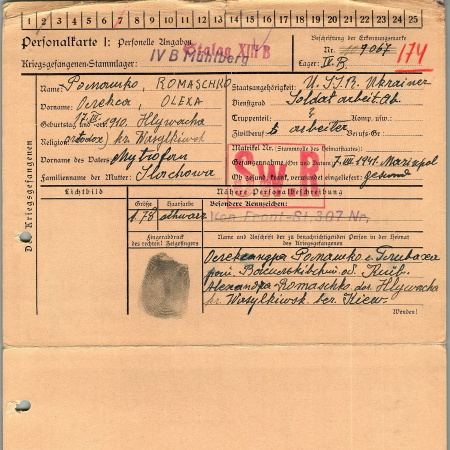 1 2 3 4 5 6 7 8 9 10 11 12 13 14 15 16 17 18 19 20 21 22 23 24 25
Personalkarte I: Personelle Angaben
Stalag XIII B
IV B Mühlberg
Kriegsgefangenen-Stammlager:
Beschriftung der Erkennungsmarke
Nr. 9067
174
Lager: IV B.
Des Kriegsgefangenen
Name: Ромашко, ROMASCHKO
Vorname: Олекса, OLEXA
Geburtstag und -ort: 1910. Hlywacha
Religion: kr. Wasylkiwsk
Vorname des Vaters: Mytrofan
Familienname der Mutter:
Staatsangehörigkeit: U.S.S.R. Ukrainer
Dienstgrad: Soldat arbeit.
Truppenteil: Komp. usw.:
Zivilberuf: arbeiter Berufs-Gr.:
Matrikel Nr. (Stammrolle des Heimatstaates):
Gefangennahme (Ort und Datum): 1941. Mariupol
Ob gesund, krank, verwundet eingeliefert: gesund
SwR
Lichtbild
Nähere Personalbeschreibung
Größe
Haarfarbe
Besondere Kennzeichen:
1.78
schwarz
Von Front-St. 307 Nr.
Fingerabdruck
des rechten! Zeigefingers
Name und Anschrift der zu benachrichtigenden Person in der Heimat
des Kriegsgefangenen
Олександра Ромашко с. Глеваха
Васильківський Київ.
Alexandra Romaschko dor. Hlywacha
kr. Wasylkiwsk bez. Kiew.
Wenden!